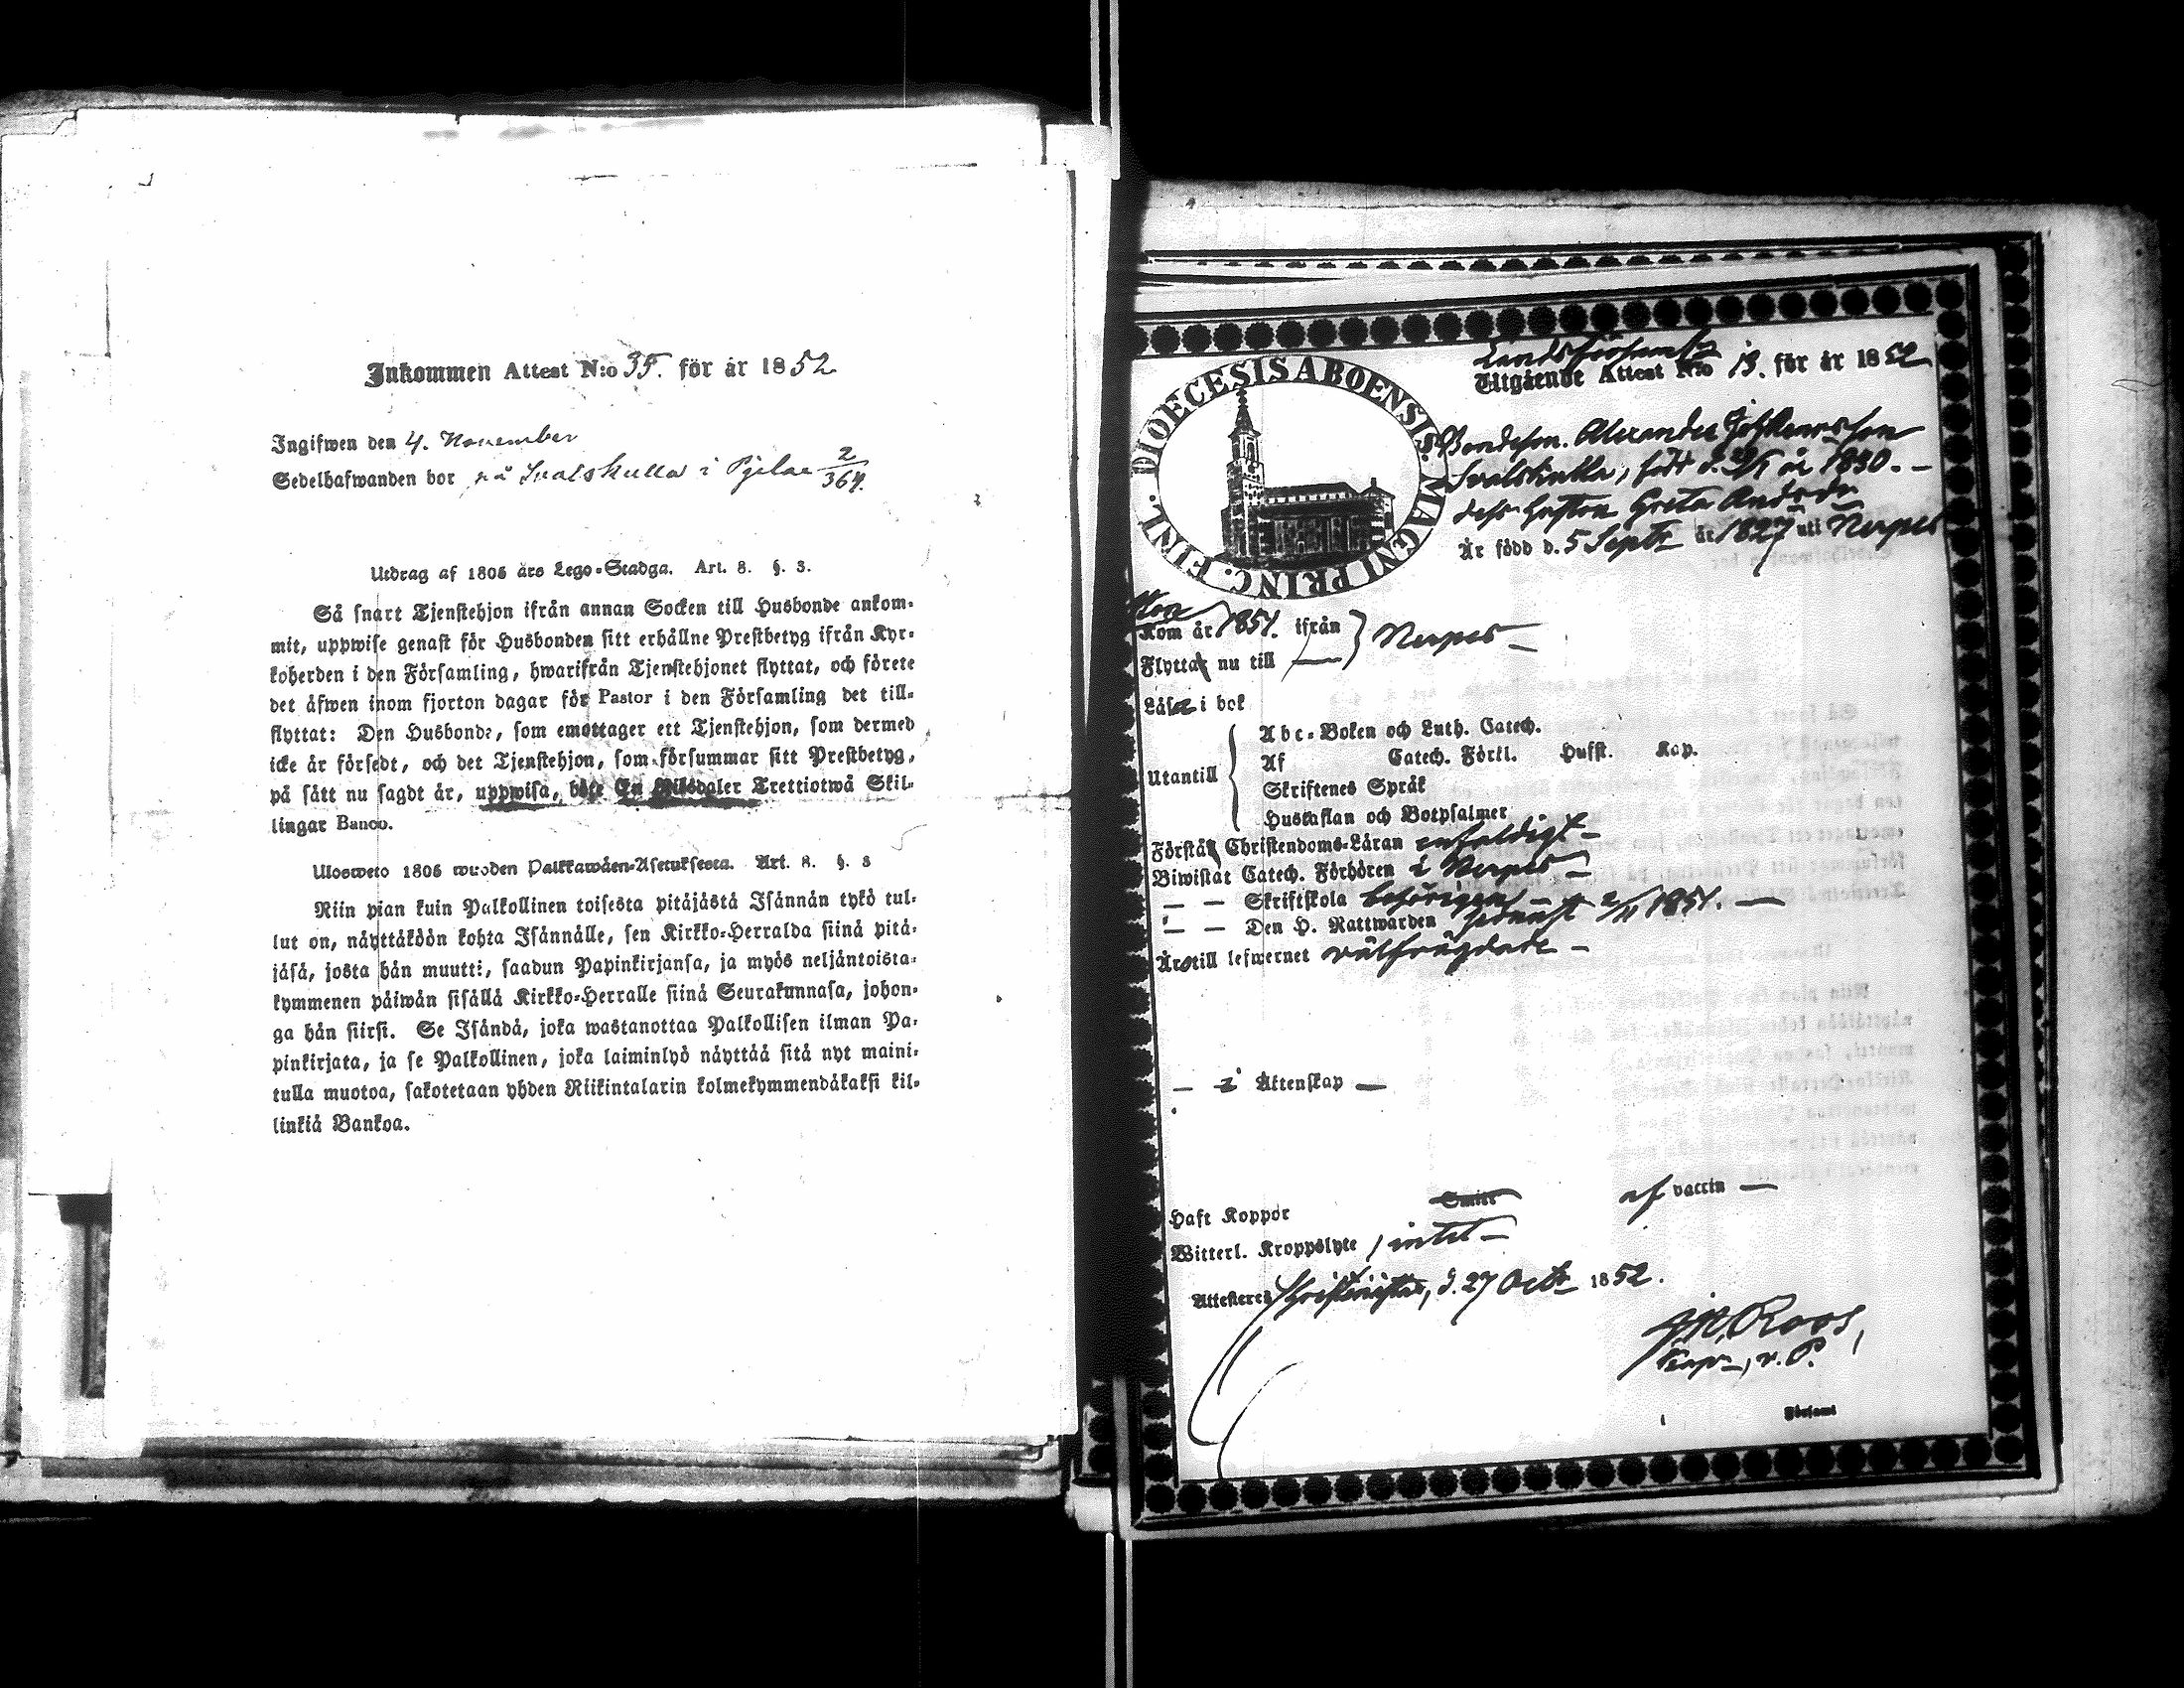 Inkommen Attest N:o 35. för år 1852.
Ingifwen den 4. November
Sedelhafwanden bor på Svalskulla i Pjelax 2/364.
Utdrag af 1805 års Lego-Stadga. Art. 8. §. 3.
Så snart Tjenstehjon ifrån annan Socken till Husbonde ankom-
mit, uppwise genast för Husbonden sitt erhållne Prestbetyg ifrån Kyr-
koherden i den Församling, hwarifrån Tjenstehjonet flyttat, och förete
det äfwen inom fjorton dagar för Pastor i den Församling det till-
flyttat: Den Husbonde, som emottager ett Tjenstehjon, som dermed
icke är försedt, och det Tjenstehjon, som försummar sitt Prestbetyg,
på sätt nu sagdt är, uppwisa, böte En Riksdaler Trettiotwå Skil-
lingar Banco.
Ulosweto 1805 wuoden Palkkawäen-Asetuksesta. Art. 8. §. 3
Niin pian kuin Palkollinen toisesta pitäjästä Isännän tykö tul-
lut on, näyttäköön kohta Isännälle, sen Kirkko-Herralda siinä pitä-
jäsä, josta hän muutti, saadun Papinkirjansa, ja myös neljäntoista-
kymmenen päiwän sisällä Kirkko-Herralle siinä Seurakunnasa, johon-
ga hän siirsi. Se Isändä, joka wastanottaa Palkollisen ilman Pa-
pinkirjata, ja se Palkollinen, joka laiminlyö näyttää sitä nyt maini-
tulla muotoa, sakotetaan yhden Riikintalarin kolmekymmendäkaksi kil-
linkiä Bankoa.
DIOECESIS ABOENSIS. MAGNI PRINC. FINL.
Landsförsaml:
Utgående Attest N:o 13. för år 1852
Bondeson. Alexander Johannsson
Svalskulla, född d. år 1830. -
dess hustru Greta Andsdr
Är född d. 5 Septr år 1827 uti Nerpes
Kom år 1851. ifrån } Nerpes -
Flytta nu till
Läsa i bok
Abc-Boken och Luth. Catech.
Utantill
Af Catech. Förkl. Husst. Kap.
Skriftenes Språk
Hustaflan och Botpsalmer
Förstå Christendoms-Läran enfaldigt -
Biwistat Catech. Förhören i Nerpes -
— — Skriftskola behörigen -
— — Den H. Nattwarden senast 2/11 1851. —
Äro till lefwernet välfrägdade -
— i Äktenskap —
Haft Koppor Smitt af vaccin —
Witterl. Kroppslyte, intet -
Attesteres Christinestad, d. 27 Octbr 1852.
Roos,
Kapn, v. P.
Församl